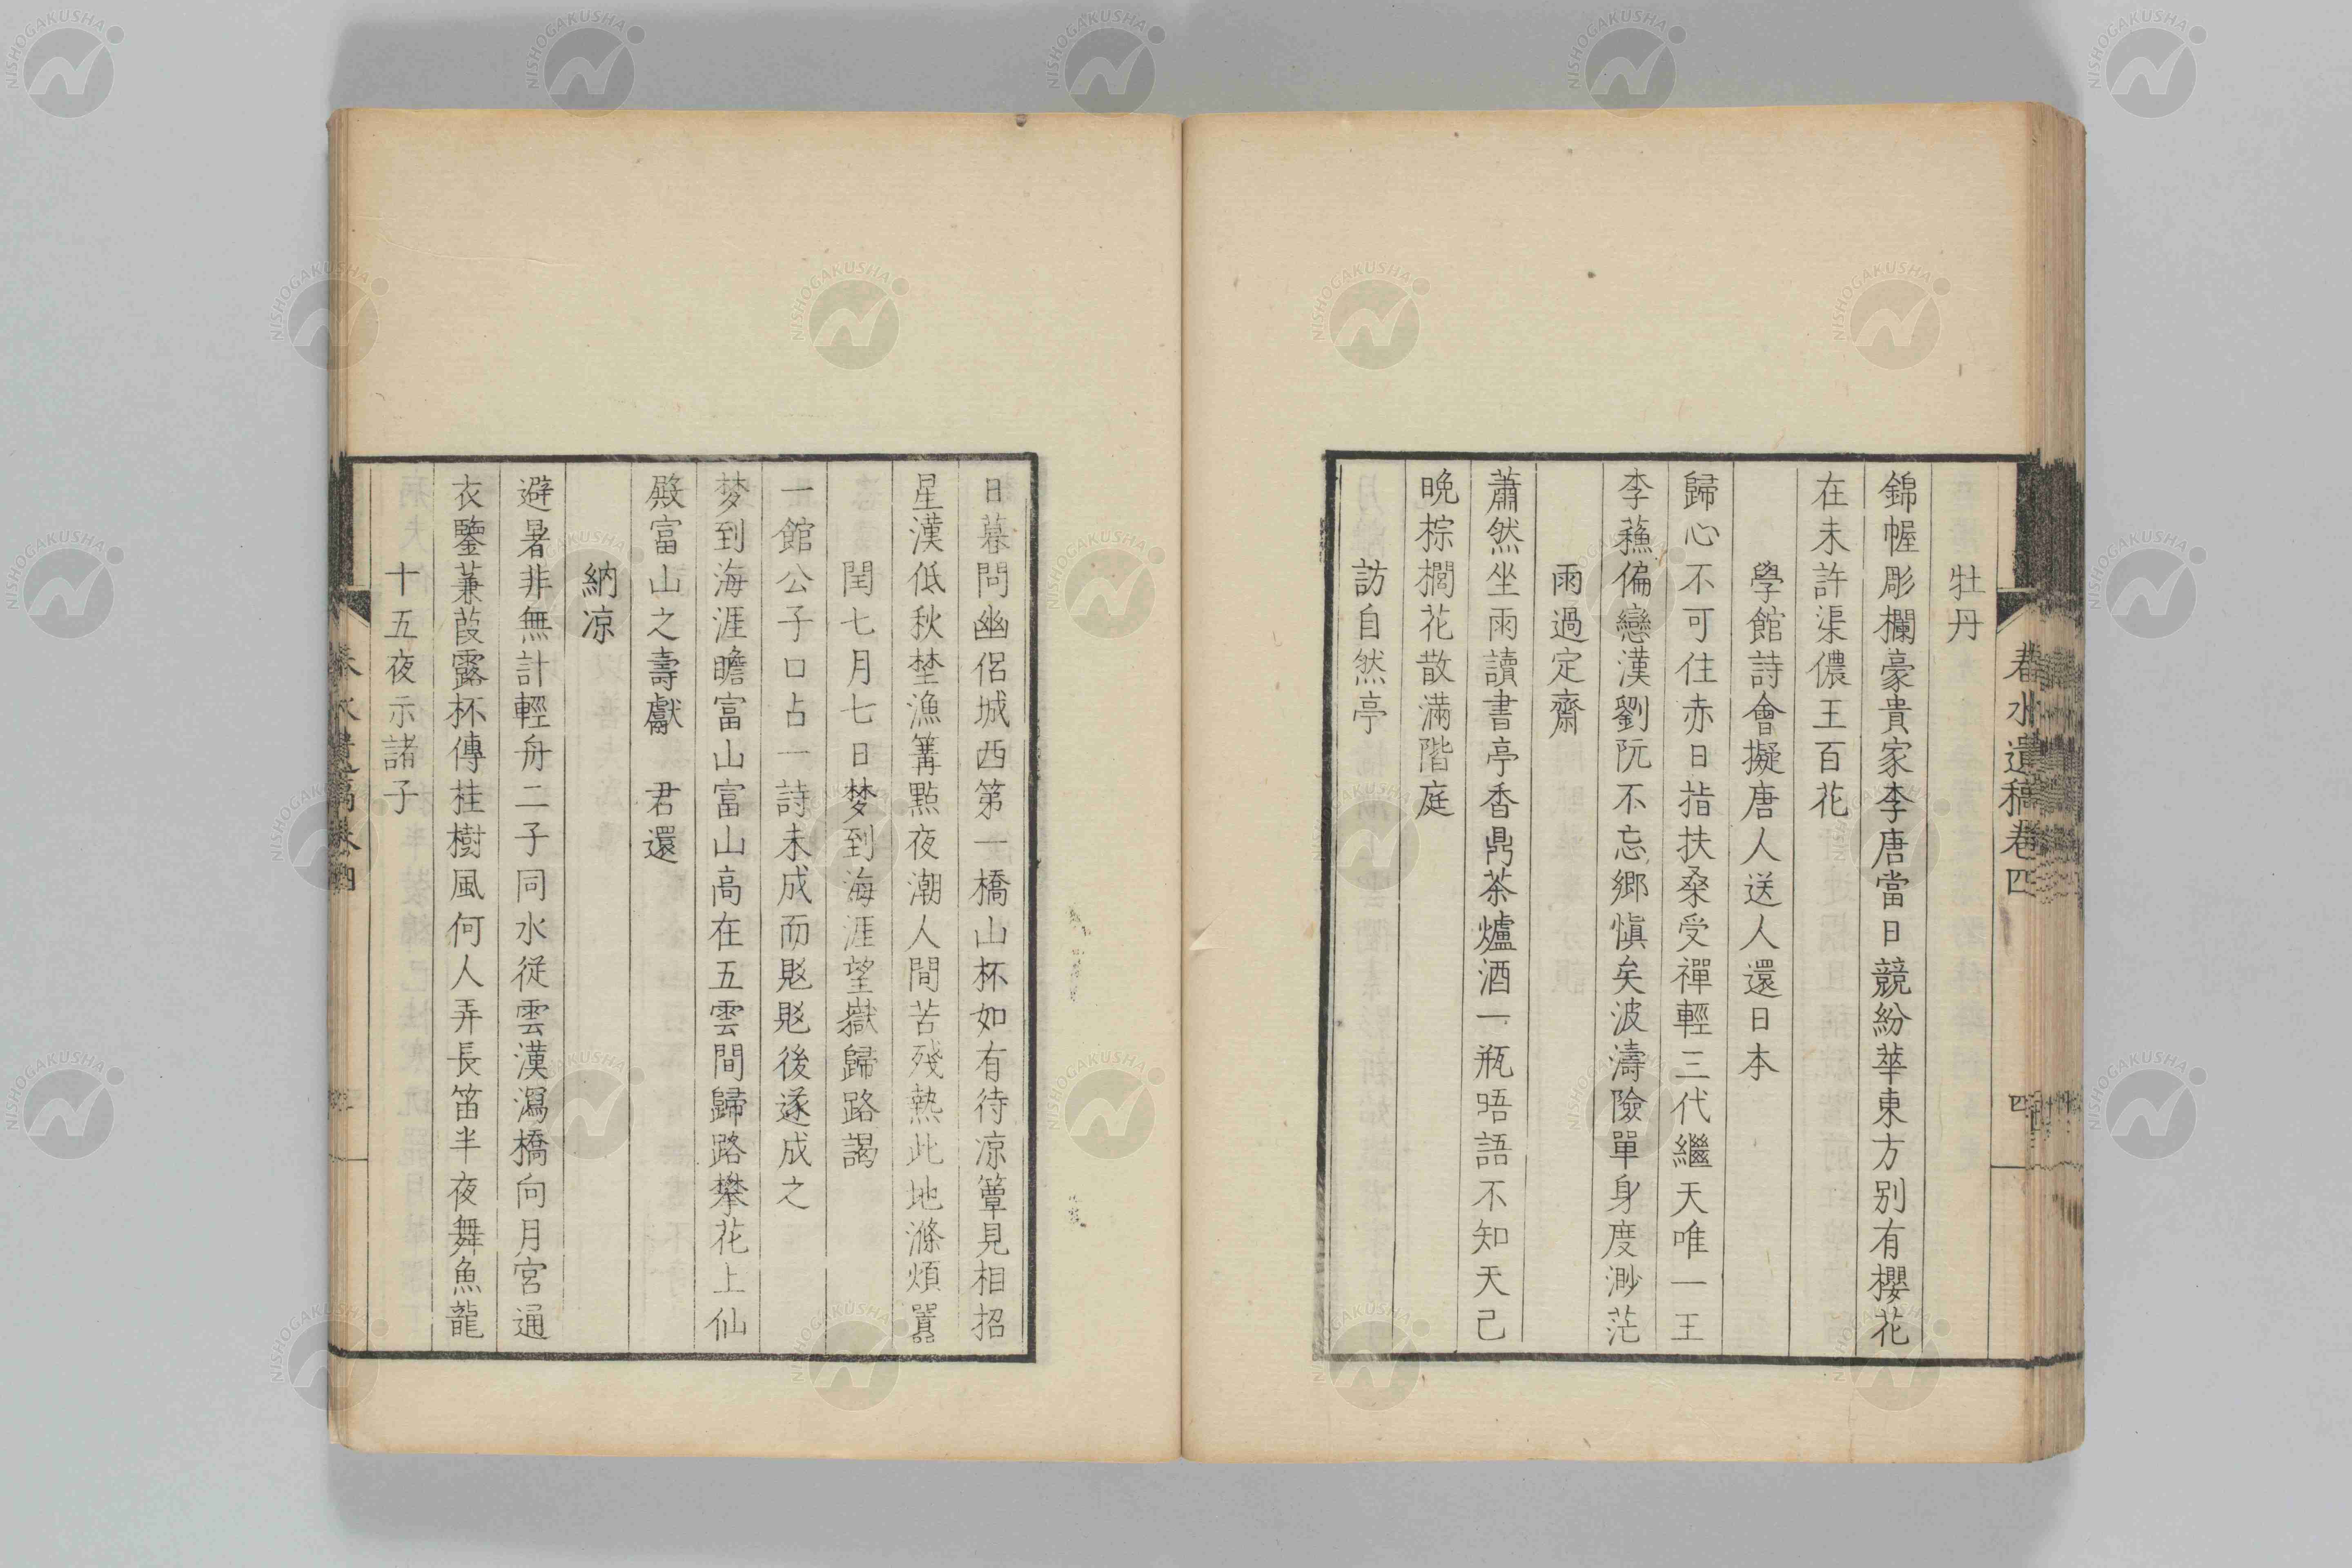 春水遺稿卷四
四
牡丹
錦幄彫欄豪貴家李唐當日競紛華東方別有櫻花
在未許渠儂王百花
學館詩會擬唐人送人還日本
歸心不可住赤日指扶桑受禪輕三代繼天唯一王
李蘓偏戀漢劉阮不忘鄉愼矣波濤險單身度渺茫
雨過定齋
蕭然坐雨讀書亭香鼎茶爐酒一瓶晤語不知天已
晩棕櫚花散滿階庭
訪自然亭
日暮問幽侶城西第一橋山杯如有待凉簟見相招
星漢低秋埜漁篝點夜潮人間苦殘熱此地滌煩囂
閏七月七日梦到海涯望嶽歸路謁
一館公子口占一詩未成而覐覐後遂成之
梦到海涯瞻富山富山高在五雲間歸路攀花上仙
殿富山之壽獻　君還
納凉
避暑非無計輕舟二子同水從雲漢瀉橋向月宮通
衣鑒蒹葭露杯傳桂樹風何人弄長笛半夜舞魚龍
十五夜示諸子
春水遺稿卷四
NISHOGAKUSHA